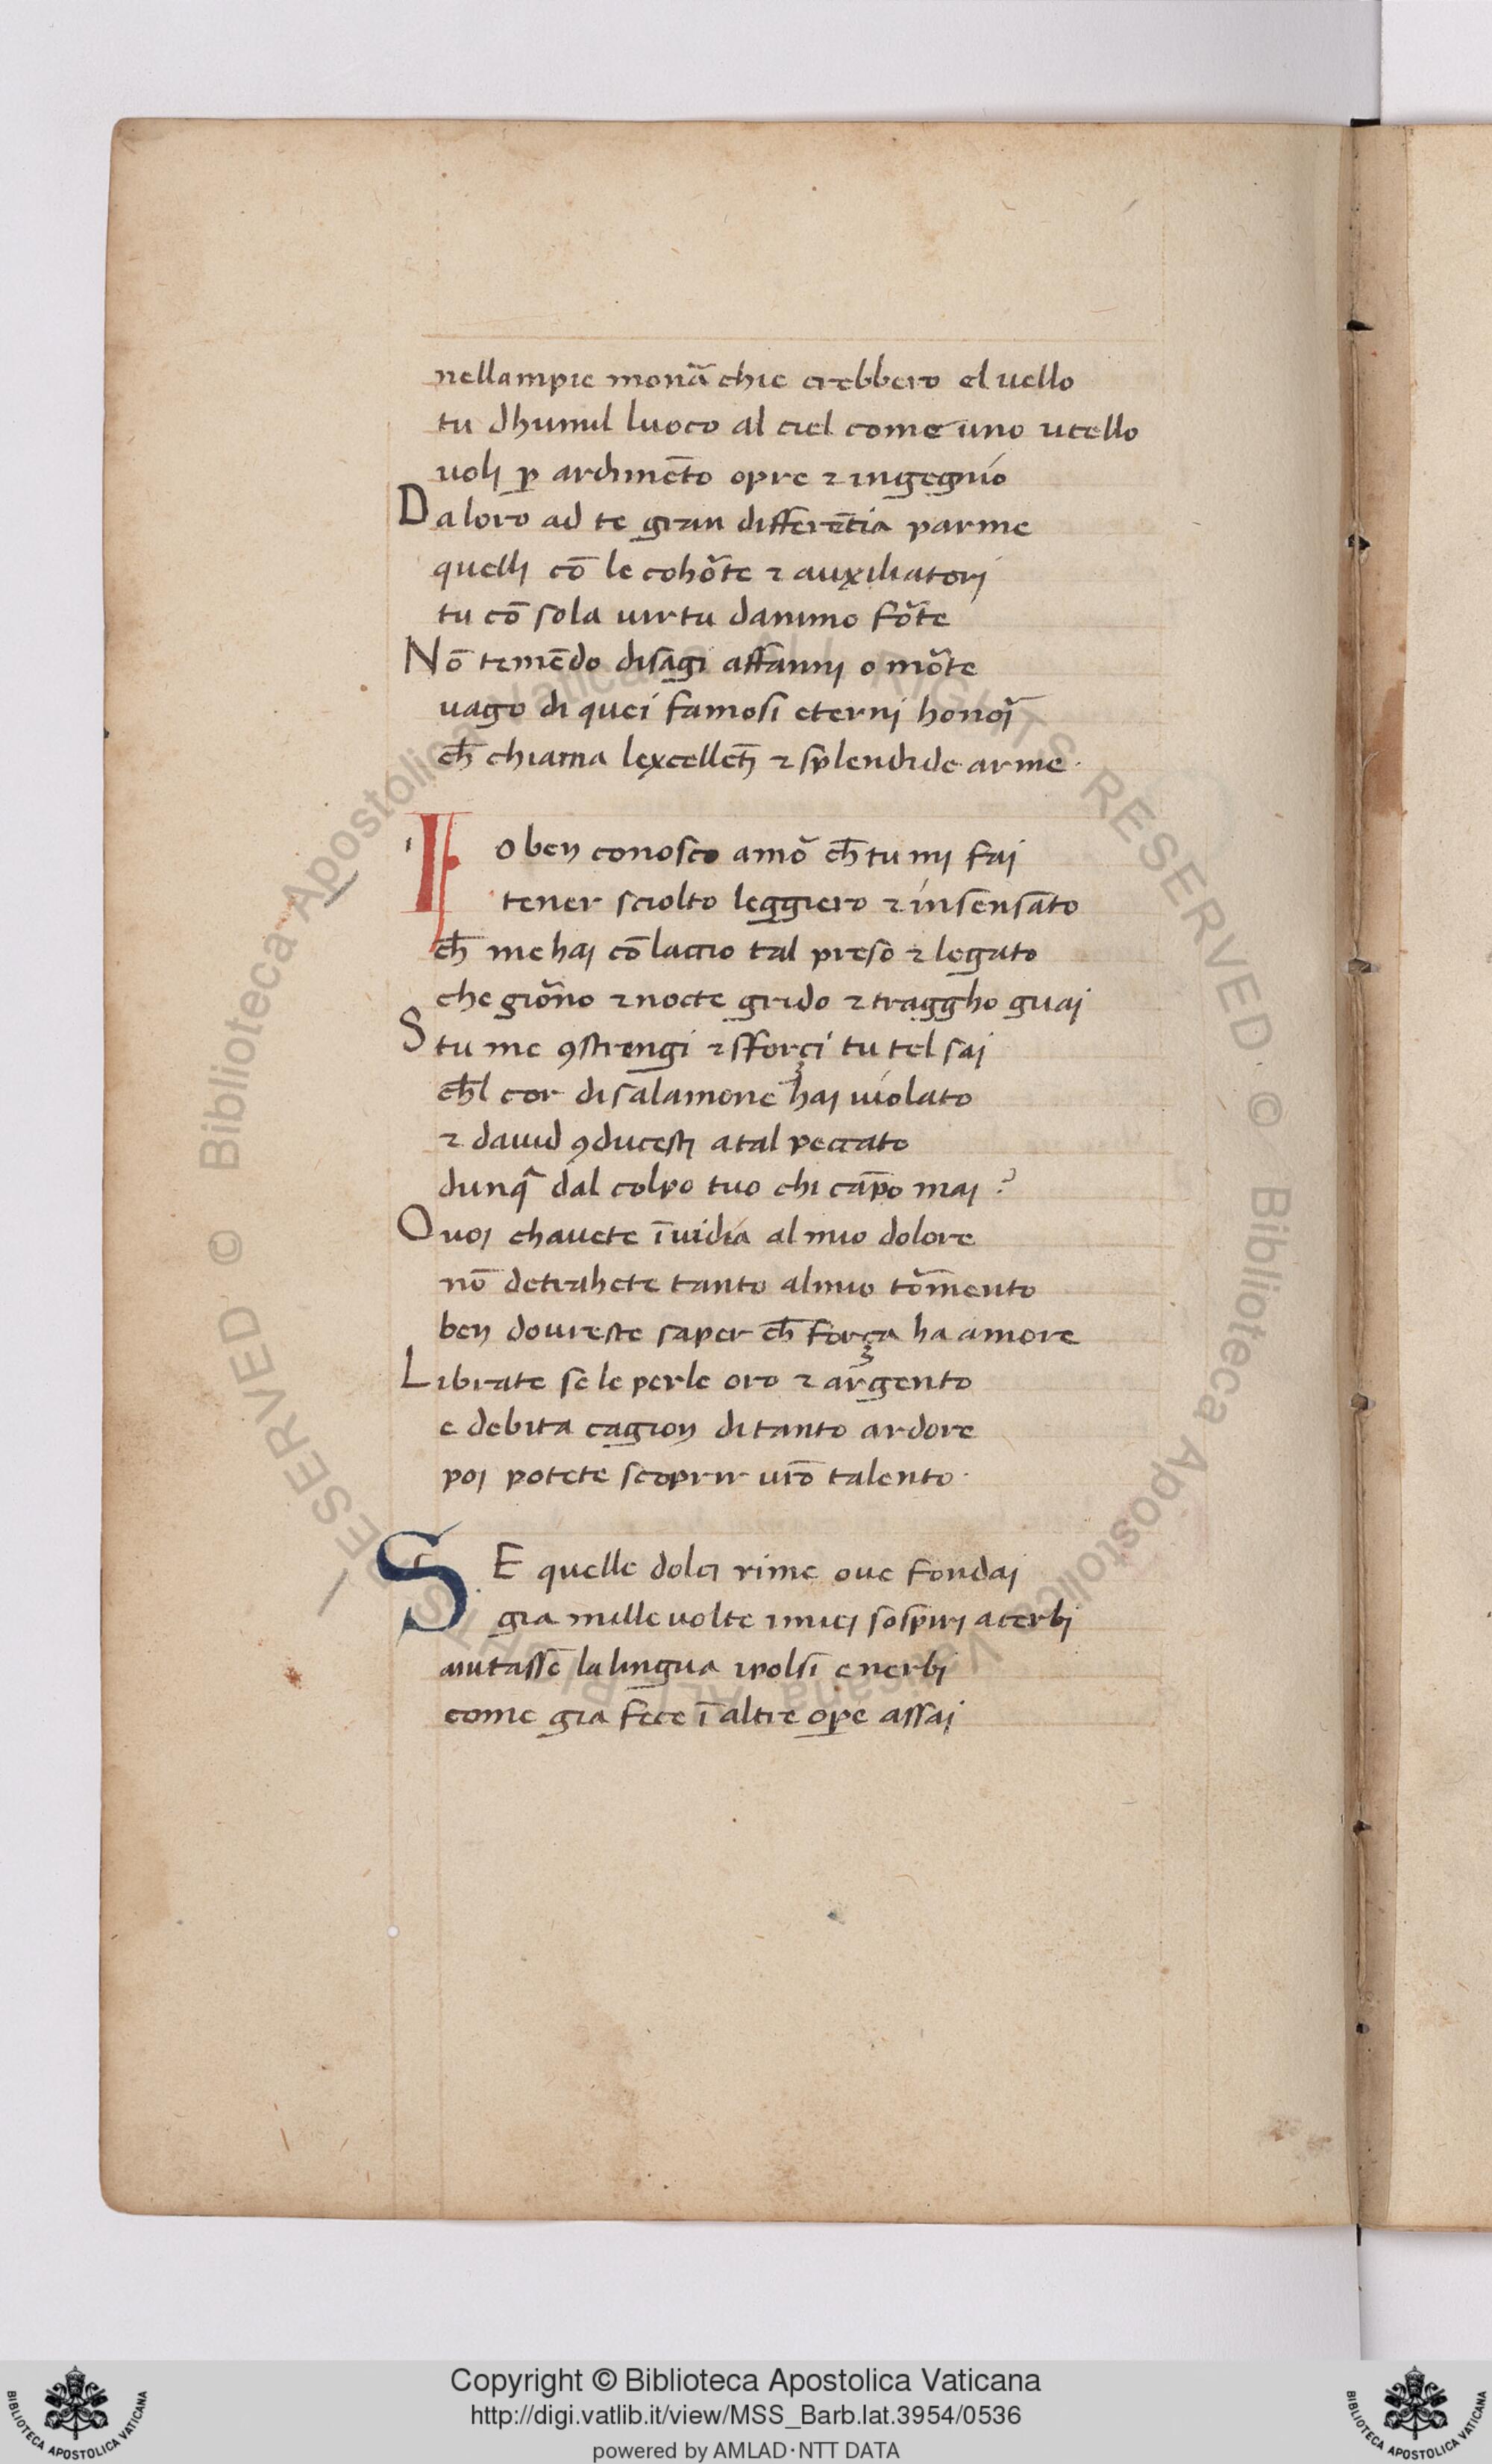 nellampie monã chie crebbero el uello
tu dhumil luoco al ciel come uno ucello
uolj ꝑ ardimẽto opre ⁊ ingegnio
Da loro ad te gran differẽtia parme
quellj cõ le cohõte ⁊ auxiliatorj
tu cõ sola uirtu danimo fõte
Nõ temẽdo disagi affannj o mõte
uago di quei famosi eternj honoĩ
ch̃ chiama lexcellẽtj ⁊ sp̃lendide arme ·
Io ben conosco amõ ch̃ tu mj faj
tener sciolto leggiero ⁊ insensato
ch̃ me haj cõ laccio tal preso ⁊ legato
che giõno ⁊ nocte grido ⁊ traggho guaj
S tu me ꝯstrengi ⁊ sforçi tu tel saj
ch̃l cor di salamone haj uiolato
⁊ dauid ꝯducestj a tal peccato
dunq̃ dal colpo tuo chi cãpo maj ?
O uoj chauete ĩuidia al mio dolore
nõ detrahete tanto al mio tõmento
ben doureste saper ch̃ força ha amore
Librate se le perle oro ⁊ argento
e debita cagion di tanto ardore
poj potete scoprir urõ talento ·
SE quelle dolci rime oue fondaj
gia mille uolte i miej sospirj acerbj
aiutassẽ la lingua ipolsi e nerbj
come gia fece ĩ altre oꝑe assaj
Copyright © Biblioteca Apostolica Vaticana
http://digi.vatlib.it/view/MSS_Barb.lat.3954/0536
powered by AMLAD·NTT DATA